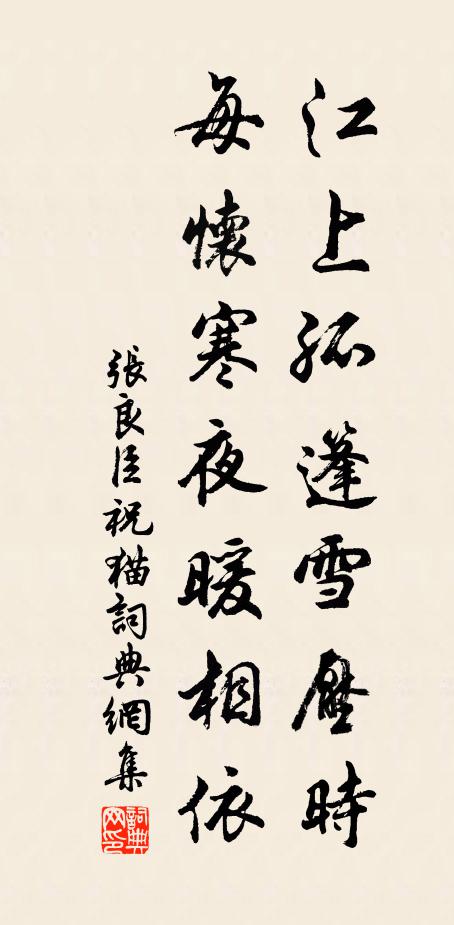 江上孤蓬雪壓時
每懷寒夜暖相依
張良臣祝猫詞典網集
詞典網印